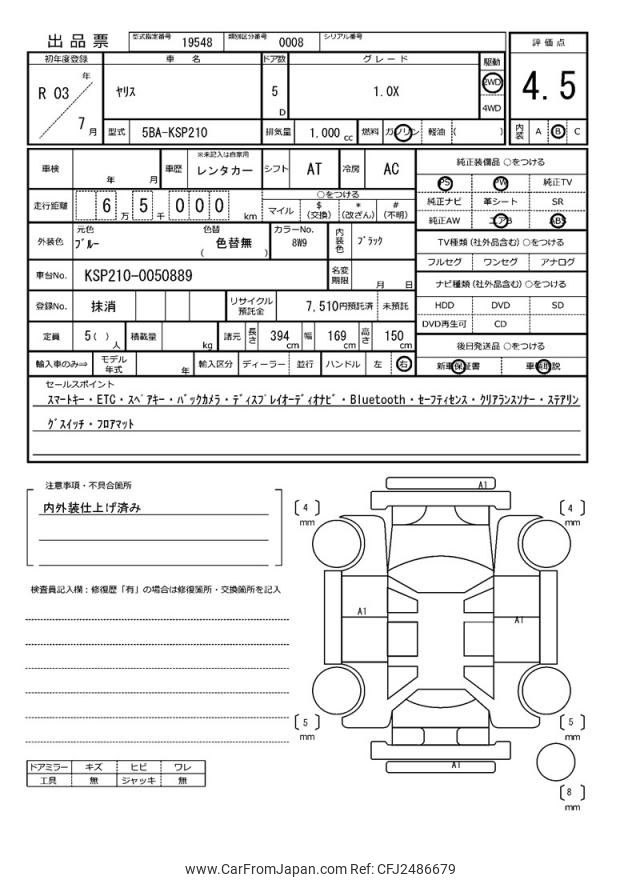 出品票 型式指定番号 19548 類別区分番号 0008 シリアル番号
評価点
4.5
内装 A B C
初年度登録 車名 ドア数 グレード 駆動
R 03 年 7 月 ヤリス 5 D 1.0X 2WD 4WD
型式 5BA-KSP210 排気量 1.000 cc 燃料 ガソリン 軽油 ( )
車検 年 月 車歴 ※未記入は自家用 レンタカー シフト AT 冷房 AC
走行距離 6 万 5 千 0 0 0 km ○をつける マイル $ (交換) * (改ざん) # (不明)
外装色 元色 ブルー 色替 色替無 ( ) カラーNo. 8W9 内装色 ブラック
車台No. KSP210-0050889 名変期限 月 日
登録No. 抹消 リサイクル預託金 7,510円預託済 未預託
定員 5( ) 人 積載量 kg 諸元 長さ 394 cm 幅 169 cm 高さ 150 cm
輸入車のみ⇒ モデル年式 年 輸入区分 ディーラー 並行 ハンドル 左 右
純正装備品 ○をつける
PS PW 純正TV
純正ナビ 革シート SR
純正AW エアB ABS
TV種類 (社外品含む) ○をつける
フルセグ ワンセグ アナログ
ナビ種類 (社外品含む) ○をつける
HDD DVD SD
DVD再生可 CD
後日発送品 ○をつける
新車保証書 車輌取説
セールスポイント
スマートキー・ETC・スペアキー・バックカメラ・ディスプレイオーディオナビ・Bluetooth・セーフティセンス・クリアランスソナー・ステアリン
グスイッチ・フロアマット
注意事項・不具合箇所
内外装仕上げ済み
検査員記入欄：修復歴「有」の場合は修復箇所・交換箇所を記入
A1
[4] mm [4] mm
A1 A1
[5] mm [5] mm
A1
[8] mm
ドアミラー キズ ヒビ ワレ
工具 無 ジャッキ 無
www.CarFromJapan.com Ref: CFJ2486679